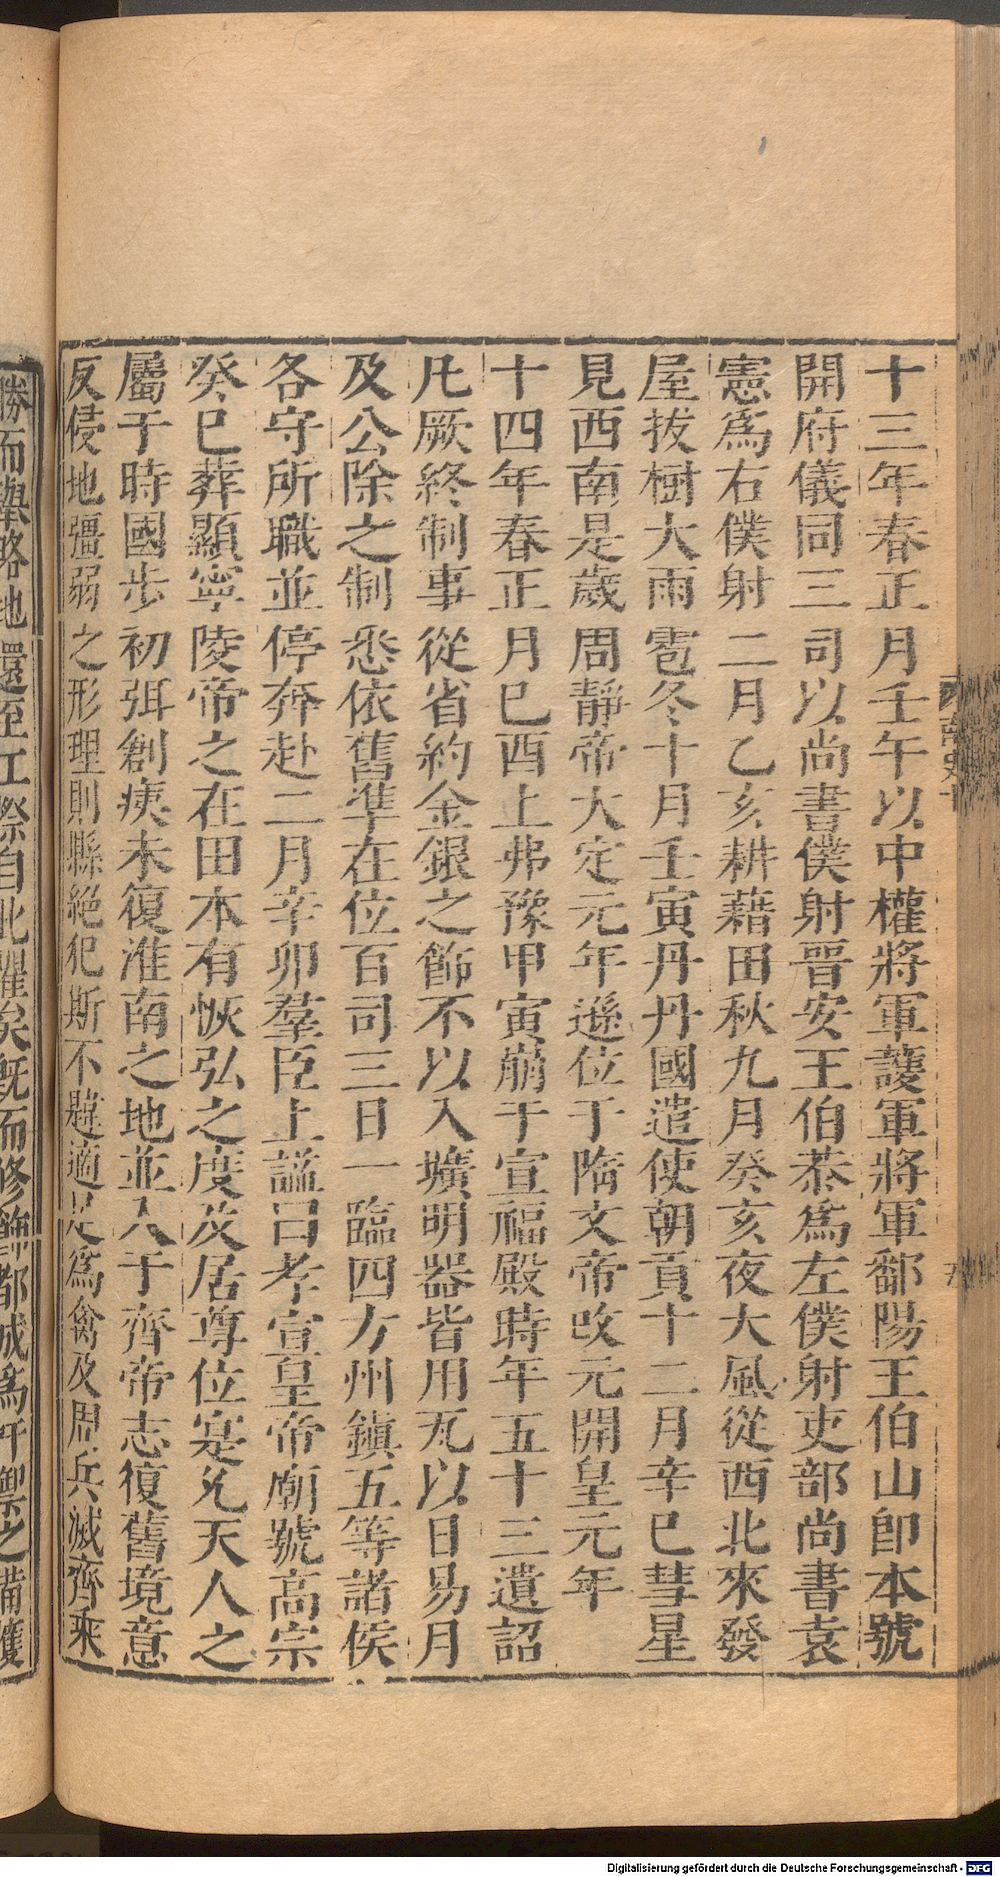 十三年春正月壬午以中權將軍護軍將軍鄱陽王伯山卽本號
開府儀同三司以尚書僕射晉安王伯恭爲左僕射吏部尚書袁
憲爲右僕射二月乙亥耕藉田秋九月癸亥夜大風從西北來發
屋拔樹大雨雹冬十月壬寅丹丹國遣使朝貢十二月辛巳彗星
見西南是歲周靜帝大定元年遜位于隋文帝改元開皇元年
十四年春正月巳酉上弗豫甲寅崩于宣福殿時年五十三遺詔
凡厥終制事從省約金銀之飾不以入壙明器皆用瓦以日易月
及公除之制悉依舊準在位百司三日一臨四方州鎮五等諸侯
各守所職並停奔赴二月辛卯羣臣上諡曰孝宣皇帝廟號高宗
癸巳葬顯寧陵帝之在田本有恢弘之度及居尊位寔允天人之
屬于時國步初弭創痍未復淮南之地並入于齊帝志復舊境意
反侵地彊弱之形理則縣絕犯斯不韙適足爲禽及周兵滅齊乘
勝而舉略地還至江際自此懼矣旣而修飾都城爲扞禦之備獲
南史十
Digitalisierung gefördert durch die Deutsche Forschungsgemeinschaft - DFG